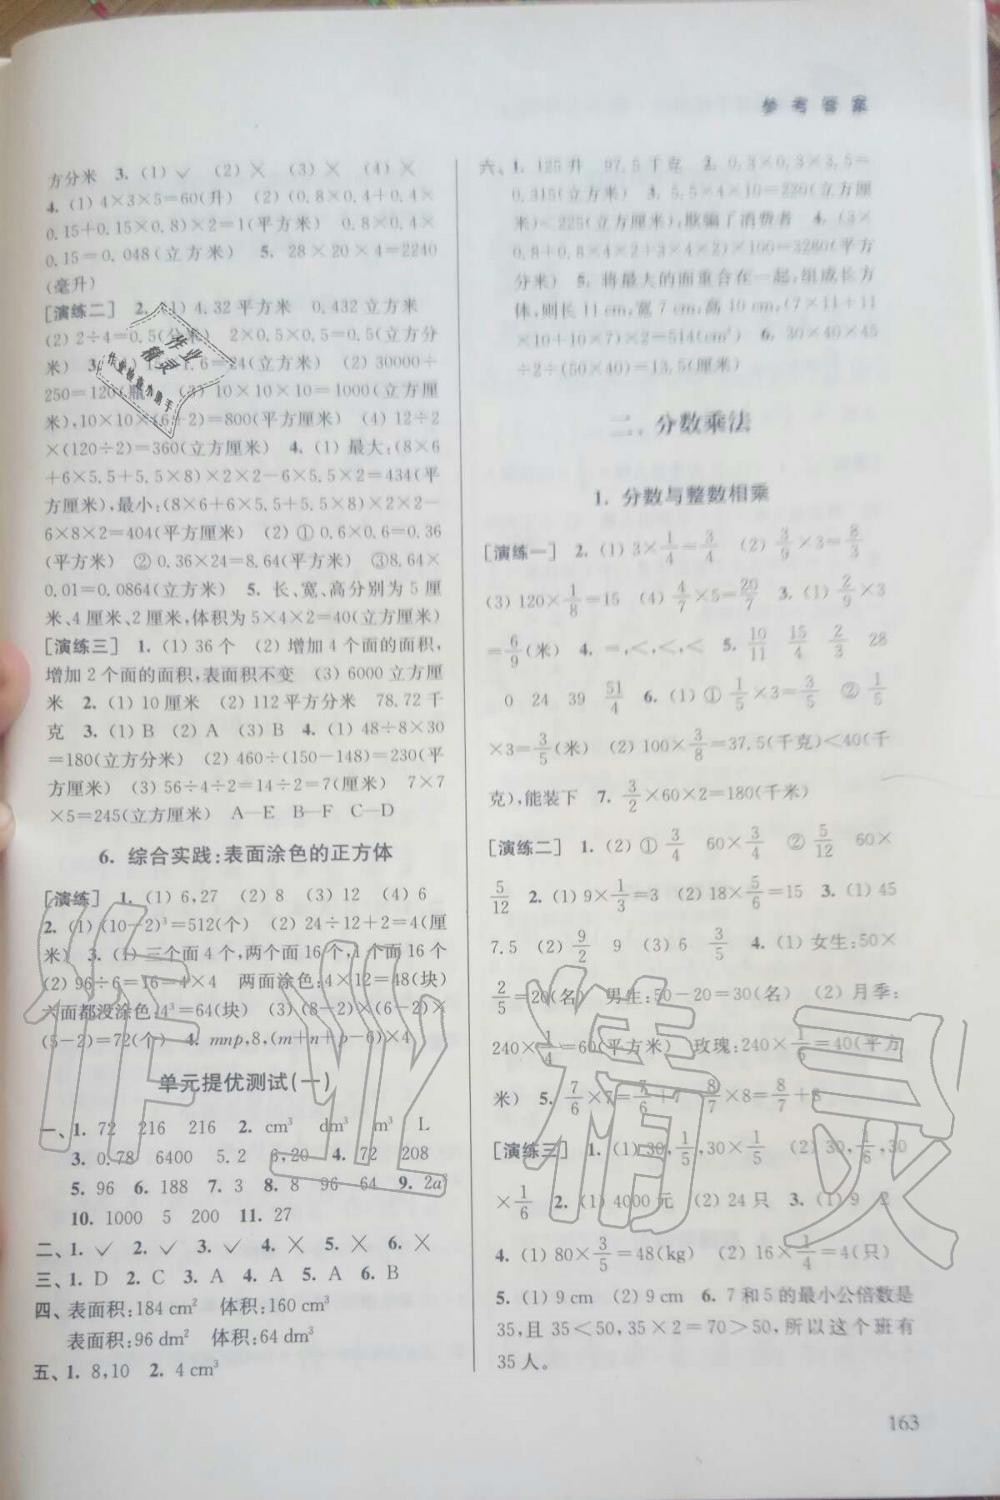 参考答案
方分米 3. (1) ✓ (2) × (3) × (4) ×
4. (1) 4×3×5=60(升) (2) (0.8×0.4+0.4×
0.15+0.15×0.8)×2=1(平方米) 0.8×0.4×
0.15=0.048(立方米) 5. 28×20×4=2240
(毫升)
[演练二] 2. (1) 4.32平方米 0.432立方米
(2) 2÷4=0.5(分米) 2×0.5×0.5=0.5(立方分
米) 3. 1.6=24(立方米) (2) 30000÷
250=120(瓶) (3) 10×10×10=1000(立方厘
米),10×10×(6+2)=800(平方厘米) (4) 12÷2
×(120÷2)=360(立方厘米) 4. (1) 最大:(8×6
+6×5.5+5.5×8)×2×2-6×5.5×2=434(平
方厘米),最小:(8×6+6×5.5+5.5×8)×2×2-
6×8×2=404(平方厘米) (2) ① 0.6×0.6=0.36
(平方米) ② 0.36×24=8.64(平方米) ③8.64×
0.01=0.0864(立方米) 5. 长、宽、高分别为5厘
米、4厘米、2厘米,体积为5×4×2=40(立方厘米)
[演练三] 1. (1) 36个 (2) 增加4个面的面积,
增加2个面的面积,表面积不变 (3) 6000立方厘
米 2. (1) 10厘米 (2) 112平方分米 78.72千
克 3. (1) B (2) A (3) B 4. (1) 48÷8×30
=180(立方分米) (2) 460÷(150-148)=230(平
方厘米) (3) 56÷4÷2=14÷2=7(厘米) 7×7
×5=245(立方厘米) A—E B—F C—D
6. 综合实践:表面涂色的正方体
[演练] 1. (1) 6,27 (2) 8 (3) 12 (4) 6
2. (1) (10-2)³=512(个) (2) 24÷12+2=4(厘
米) 3. (1) 三个面4个,两个面16个,1个面16个
(2) 96÷6=16=4×4 两面涂色:4×12=48(块)
六面都没涂色:4³=64(块) (3) (8-2)×(6-2)×
(5-2)=72(个) 4. mnp,8,(m+n+p-6)×4
单元提优测试(一)
一、1. 72 216 216 2. cm³ dm³ m³ L
3. 0.78 6400 5.2 6,20 4. 72 208
5. 96 6. 188 7. 3 8. 8 96 64 9. 2a³
10. 1000 5 200 11. 27
二、1. ✓ 2. ✓ 3. ✓ 4. × 5. × 6. ×
三、1. D 2. C 3. A 4. A 5. A 6. B
四、表面积:184 cm² 体积:160 cm³
表面积:96 dm² 体积:64 dm³
五、1. 8,10 2. 4 cm³
六、1. 125升 97.5千克 2. 0.3×0.3×3.5=
0.315(立方米) 3. 5.5×4×10=220(立方厘
米)<225(立方厘米),欺骗了消费者 4. (3×
0.8+0.8×4×2+3×4×2)×100=3280(平方
分米) 5. 将最大的面重合在一起,组成长方
体,则长11 cm,宽7 cm,高10 cm,(7×11+11
×10+10×7)×2=514(cm²) 6. 30×40×45
÷2÷(50×40)=13.5(厘米)
二、分数乘法
1. 分数与整数相乘
[演练一] 2. (1) 3×1/4=3/4 (2) 3/9×3=8/3
(3) 120×1/8=15 (4) 4/7×5=20/7 3. (1) 2/9×3
=6/9(米) 4. =,<,<,< 5. 10/11 15/4 2/3 28
0 24 39 51/4 6. (1) ① 1/5×3=3/5 ② 1/5
×3=3/5(米) (2) 100×3/8=37.5(千克)<40(千
克),能装下 7. 3/2×60×2=180(千米)
[演练二] 1. (2) ① 3/4 60×3/4 ② 5/12 60×
5/12 2. (1) 9×1/3=3 (2) 18×5/6=15 3. (1) 45
7.5 (2) 9/2 9 (3) 6 3/5 4. (1) 女生:50×
2/5=20(名) 男生:50-20=30(名) (2) 月季:
240×1/4=60(平方米) 玫瑰:240×1/6=40(平方
米) 5. 7/6×7=7/6+7 8/7×8=8/7+8
[演练三] 1. (1) 30,1/5,30×1/5 (2) 30,1/6,30
×1/6 2. (1) 4000元 (2) 24只 3. (1) 9 2
4. (1) 80×3/5=48(kg) (2) 16×1/4=4(只)
5. (1) 9 cm (2) 9 cm 6. 7和5的最小公倍数是
35,且35<50,35×2=70>50,所以这个班有
35人。
163
作业
精灵
作业检查小助手
作业精灵